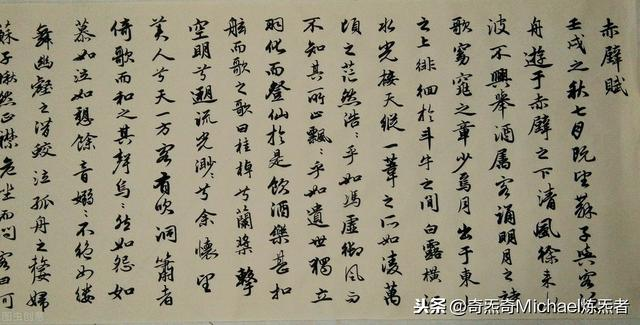 赤壁賦
壬戌之秋七月既望蘇子與客泛
舟遊于赤壁之下清風徐來水
波不興舉酒屬客誦明月之詩
歌窈窕之章少焉月出于東山
之上徘徊於斗牛之間白露橫江
水光接天縱一葦之所如凌萬
頃之茫然浩:乎如馮虛御風而
不知其所止飄:乎如遺世獨立
羽化而登仙於是飲酒樂甚扣
舷而歌之歌曰桂棹兮蘭槳擊
空明兮遡流光渺:兮余懷望
美人兮天一方客有吹洞簫者
倚歌而和之其聲烏:然如怨如
慕如泣如愬餘音嫋:不絕如縷
舞幽壑之潛蛟泣孤舟之嫠婦
蘇子愀然正襟危坐而問客曰何
头条@奇炁奇Michael炼炁者